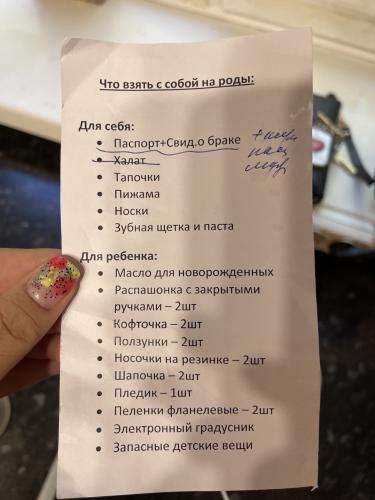 Что взять с собой на роды:
Для себя:
• Паспорт+Свид.о браке
• Халат
• Тапочки
• Пижама
• Носки
• Зубная щетка и паста
Для ребенка:
• Масло для новорожденных
• Распашонка с закрытыми
ручками – 2шт
• Кофточка – 2шт
• Ползунки – 2шт
• Носочки на резинке – 2шт
• Шапочка – 2шт
• Пледик – 1шт
• Пеленки фланелевые – 2шт
• Электронный градусник
• Запасные детские вещи